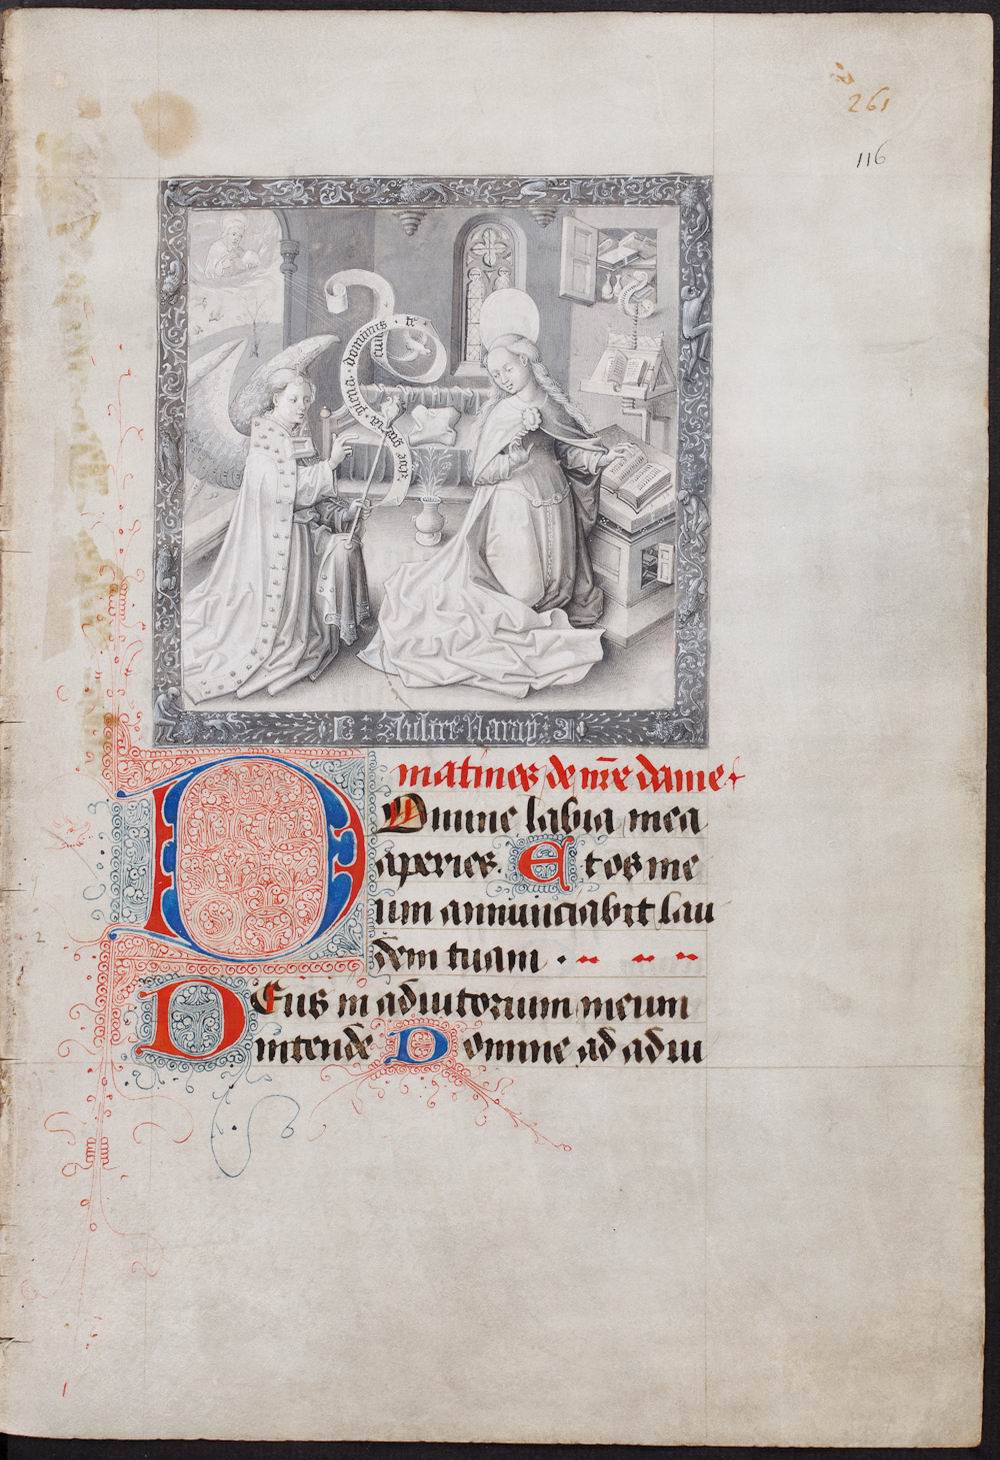 261
116
aue gracia plena dominus te cum
matines de nr̄e dame
Domine labia mea
aperies. Et os me
um annunciabit lau
dem tuam .
Deus in adiutorium meum
intende Domine ad adiu